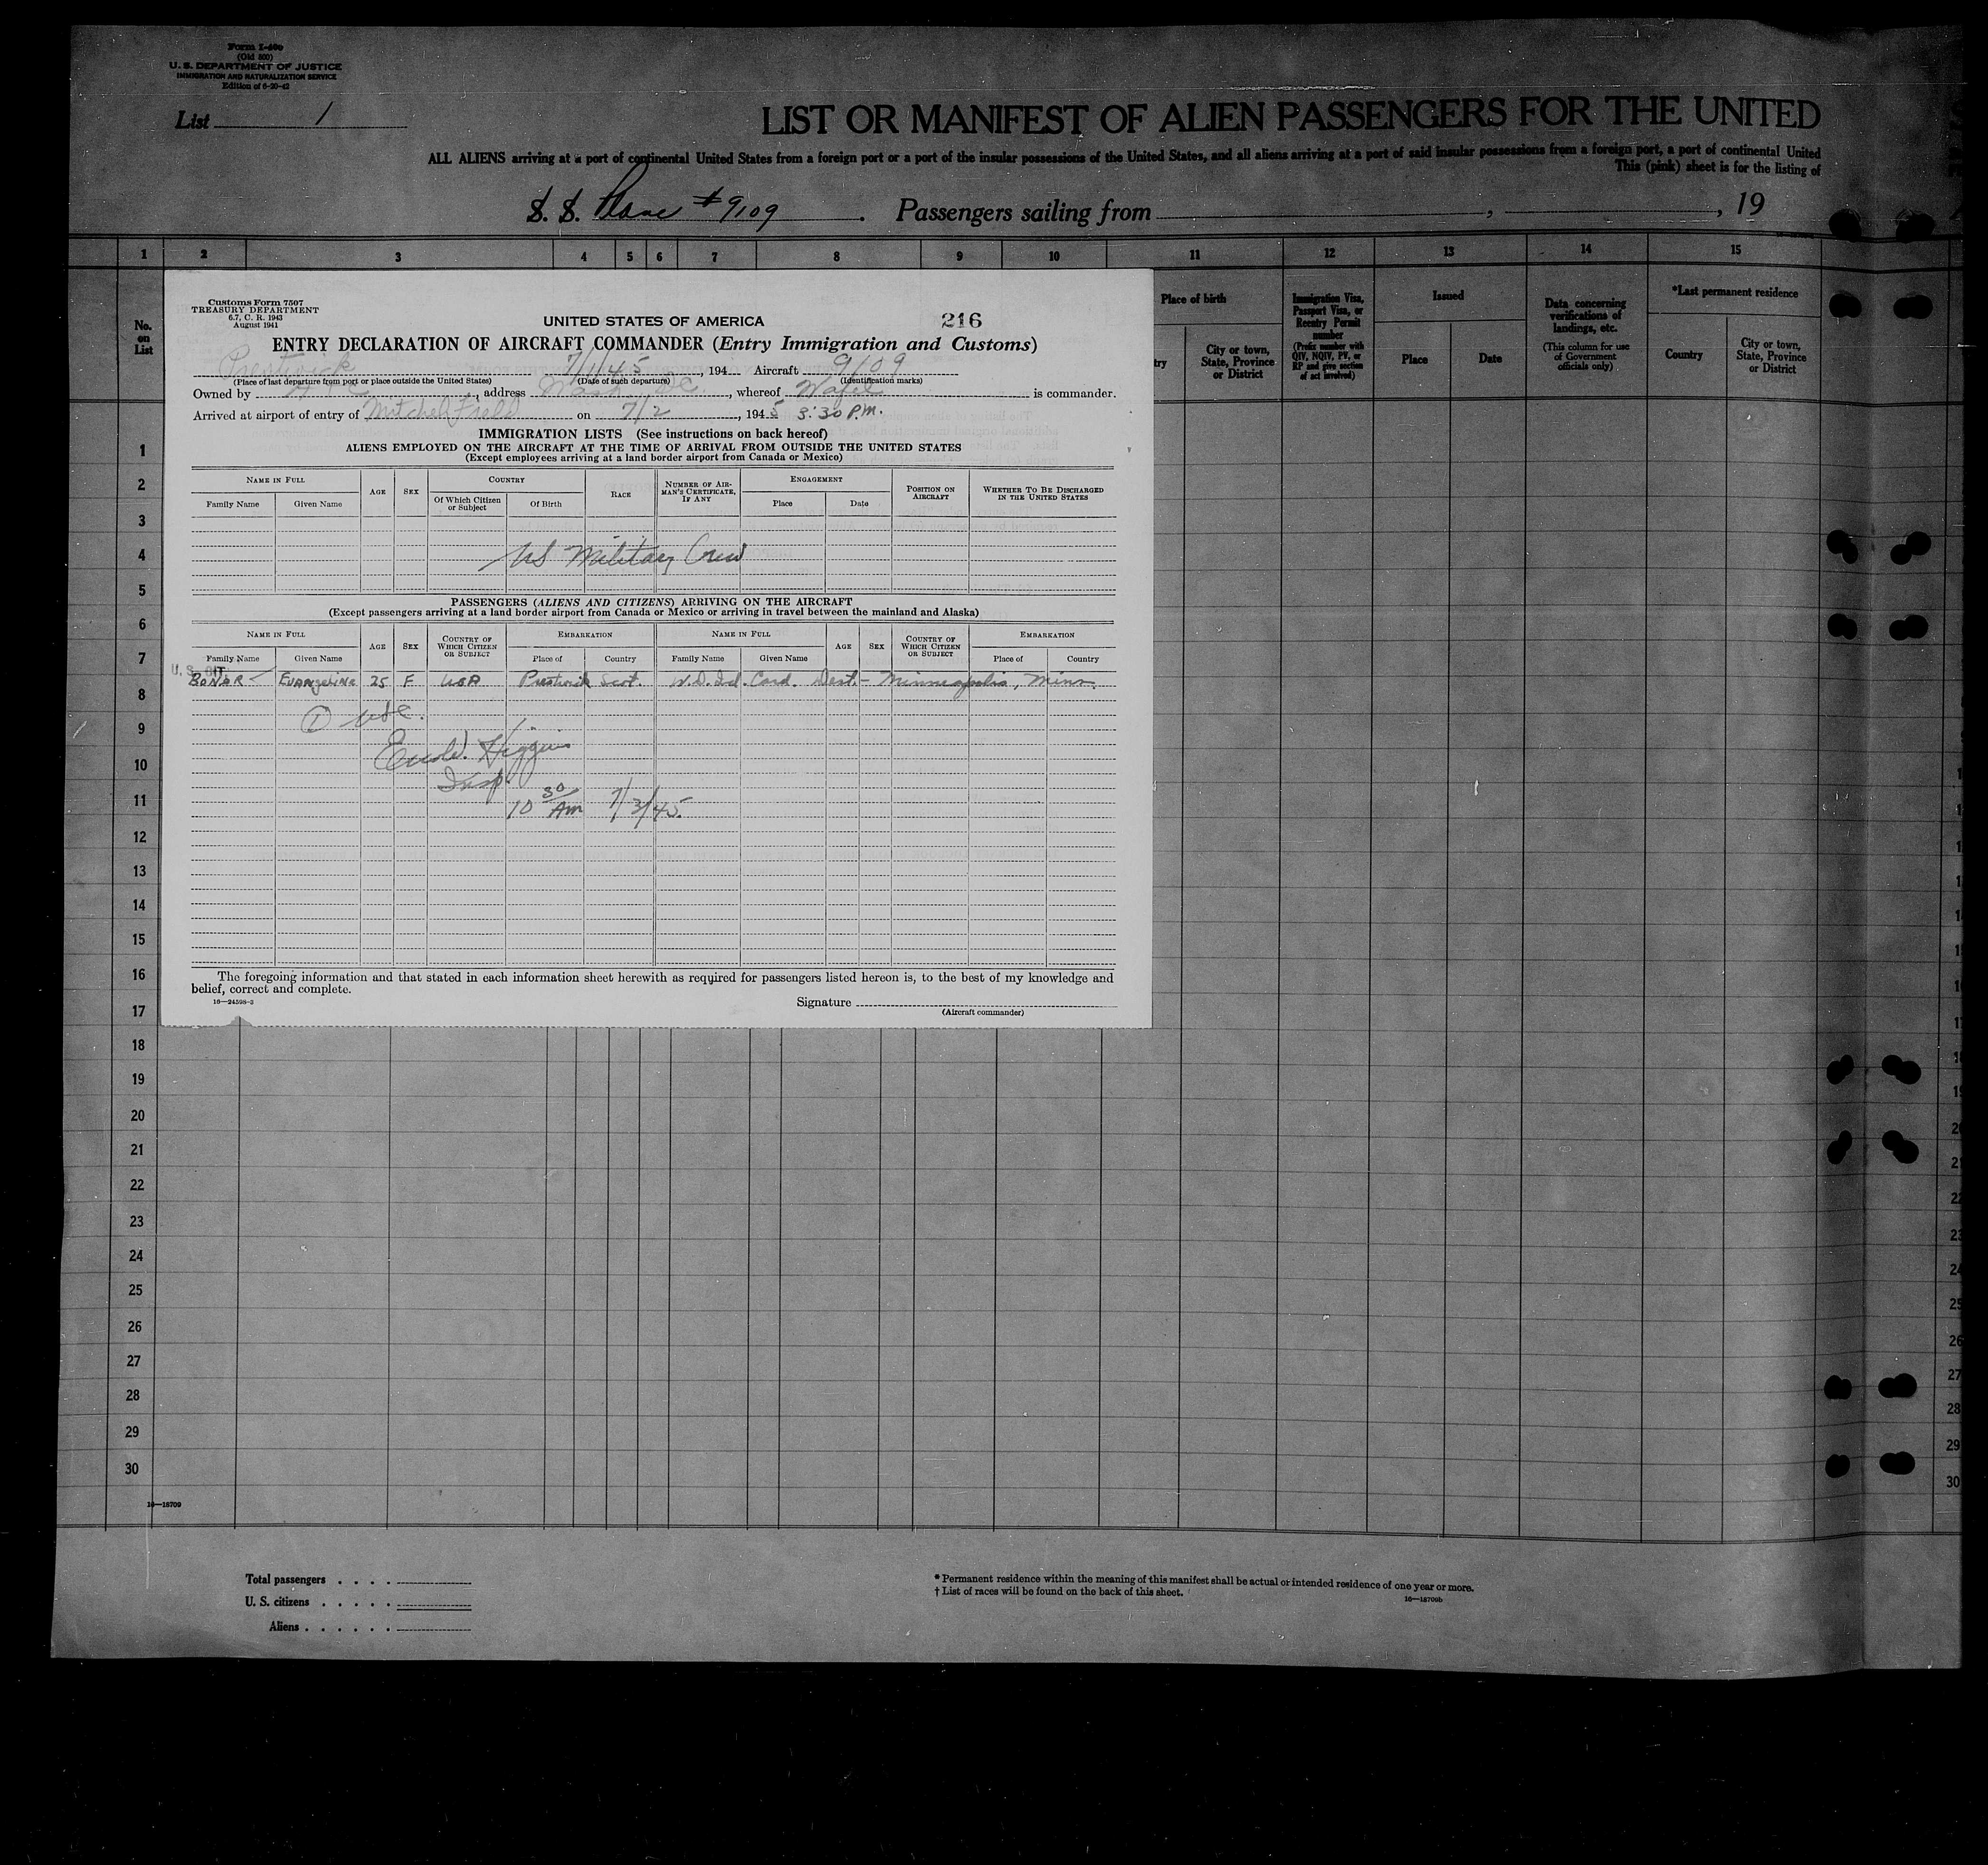 Form I-400
(Old 500)
U. S. DEPARTMENT OF JUSTICE
IMMIGRATION AND NATURALIZATION SERVICE
Edition of 6-20-42
List 1
LIST OR MANIFEST OF ALIEN PASSENGERS FOR THE UNITED
ALL ALIENS arriving at a port of continental United States from a foreign port or a port of the insular possessions of the United States, and all aliens arriving at a port of said insular possessions from a foreign port, a port of continental United
This (pink) sheet is for the listing of
S. S. Plane #9109. Passengers sailing from , , 19
1 2 3 4 5 6 7 8 9 10 11 12 13 14 15
No. on List
Place of birth
City or town, State, Province or District
Immigration Visa, Passport Visa, or Reentry Permit number
(Prefix number with QIV, NQIV, PV, or RP and give section of act involved)
Issued
Place
Date
Data concerning verifications of landings, etc.
(This column for use of Government officials only)
*Last permanent residence
Country
City or town, State, Province or District
Customs Form 7507
TREASURY DEPARTMENT
6.7, C. R. 1943
August 1941
UNITED STATES OF AMERICA
216
ENTRY DECLARATION OF AIRCRAFT COMMANDER (Entry Immigration and Customs)
Prestwick 7/1/45, 194 Aircraft 9109
(Place of last departure from port or place outside the United States) (Date of such departure) (Identification marks)
Owned by ATC, address Wash DC, whereof is commander.
Arrived at airport of entry of Mitchel Field on 7/2, 1945 3:30 P.M.
IMMIGRATION LISTS (See instructions on back hereof)
ALIENS EMPLOYED ON THE AIRCRAFT AT THE TIME OF ARRIVAL FROM OUTSIDE THE UNITED STATES
(Except employees arriving at a land border airport from Canada or Mexico)
NAME IN FULL AGE SEX COUNTRY RACE NUMBER OF AIRMAN'S CERTIFICATE, IF ANY ENGAGEMENT POSITION ON AIRCRAFT WHETHER TO BE DISCHARGED IN THE UNITED STATES
Family Name Given Name Of Which Citizen or Subject Of Birth Place Date
US Military Crew
PASSENGERS (ALIENS AND CITIZENS) ARRIVING ON THE AIRCRAFT
(Except passengers arriving at a land border airport from Canada or Mexico or arriving in travel between the mainland and Alaska)
NAME IN FULL AGE SEX COUNTRY OF WHICH CITIZEN OR SUBJECT EMBARKATION NAME IN FULL AGE SEX COUNTRY OF WHICH CITIZEN OR SUBJECT EMBARKATION
Family Name Given Name Place of Country Family Name Given Name Place of Country
U. S. CIT.
BONAR Evangeline 25 F USA Prestwick Scot. W.D. Id. Card. Dest. - Minneapolis, Minn.
① USC.
Higgins
Insp.
10 30/AM 7/3/45.
The foregoing information and that stated in each information sheet herewith as required for passengers listed hereon is, to the best of my knowledge and
belief, correct and complete.
16—24598-2
Signature
(Aircraft commander)
1
2
3
4
5
6
7
8
9
10
11
12
13
14
15
16
17
18
19
20
21
22
23
24
25
26
27
28
29
30
16—18709
Total passengers . . . .
U. S. citizens . . . . .
Aliens . . . . . .
* Permanent residence within the meaning of this manifest shall be actual or intended residence of one year or more.
† List of races will be found on the back of this sheet.
16—18709b